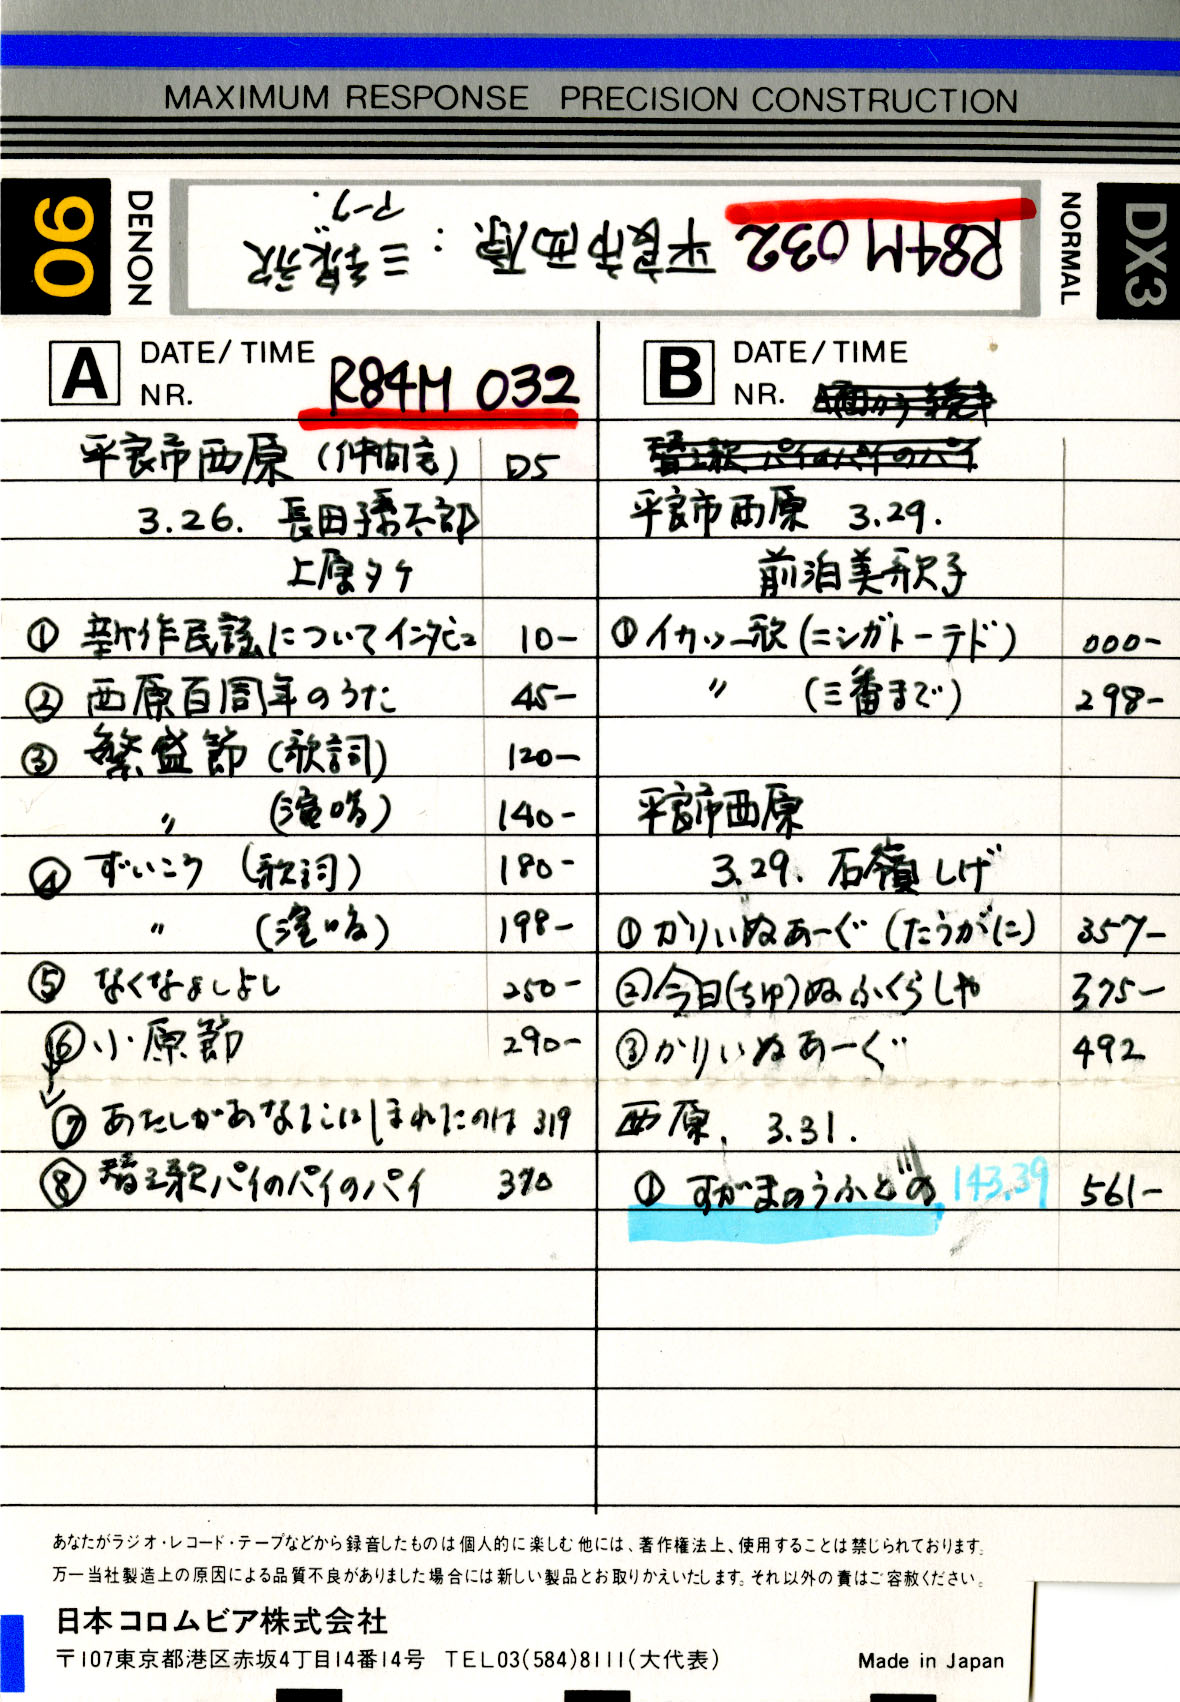 MAXIMUM RESPONSE PRECISION CONSTRUCTION
90 DENON
R84M 032 平良市西原：三線歌
アーグ.
NORMAL DX3
A DATE/TIME
NR. R84M 032
平良市西原（仲間宅） 05
3.26. 長田孫太郎
上原タケ
① 新作民謡についてインタビュー 10-
② 西原百周年のうた 45-
③ 繁盛節（歌詞） 120-
〃 （演唱） 140-
④ ずいこう （歌詞） 180-
〃 （演唱） 198-
⑤ なくなよしよし 250-
⑥ 小原節 290-
⑦ あたしがあなたにほれたのは 319
⑧ 替え歌パイのパイのパイ 370
B DATE/TIME
NR.
替え歌 パイのパイのパイ
平良市西原 3.29.
前泊美歌子
① イカッニ歌（ニシガトーテド） 000-
〃 （三番まで） 298-
平良市西原
3.29. 石嶺しげ
① かりいぬあーぐ（たうがに） 357-
② 今日（ちゅ）ぬふくらしゃ 375-
③ かりいぬあーぐ 492
西原. 3.31.
① すがまのうふどの 143.39 561-
あなたがラジオ・レコード・テープなどから録音したものは個人的に楽しむ他には、著作権法上、使用することは禁じられております。
万一当社製造上の原因による品質不良がありました場合には新しい製品とお取りかえいたします。それ以外の責はご容赦ください。
日本コロムビア株式会社
〒107東京都港区赤坂4丁目14番14号 TEL03(584)8111(大代表) Made in Japan